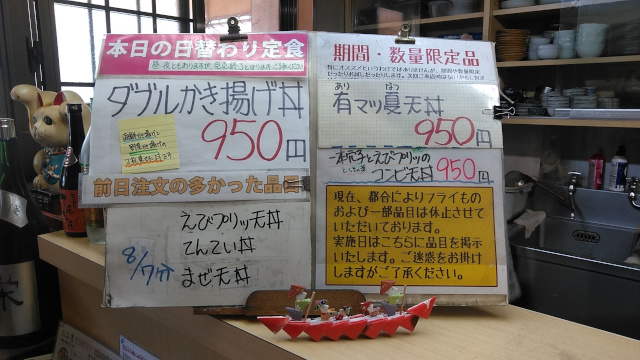 本日の日替わり定食
ダブルかき揚げ丼
950円
前日注文の多かった品目
8/7分
えびプリッ天丼
てんてい丼
まぜ天丼
期間・数量限定品
あり なつ
有マッ夏天丼
950円
えびプリッの
コンビ天丼 950円
現在、都合によりフライもの
および一部品目は休止させて
いただいております。
実施日はこちらに品目を掲示
いたします。ご迷惑をお掛け
しますがご了承ください。